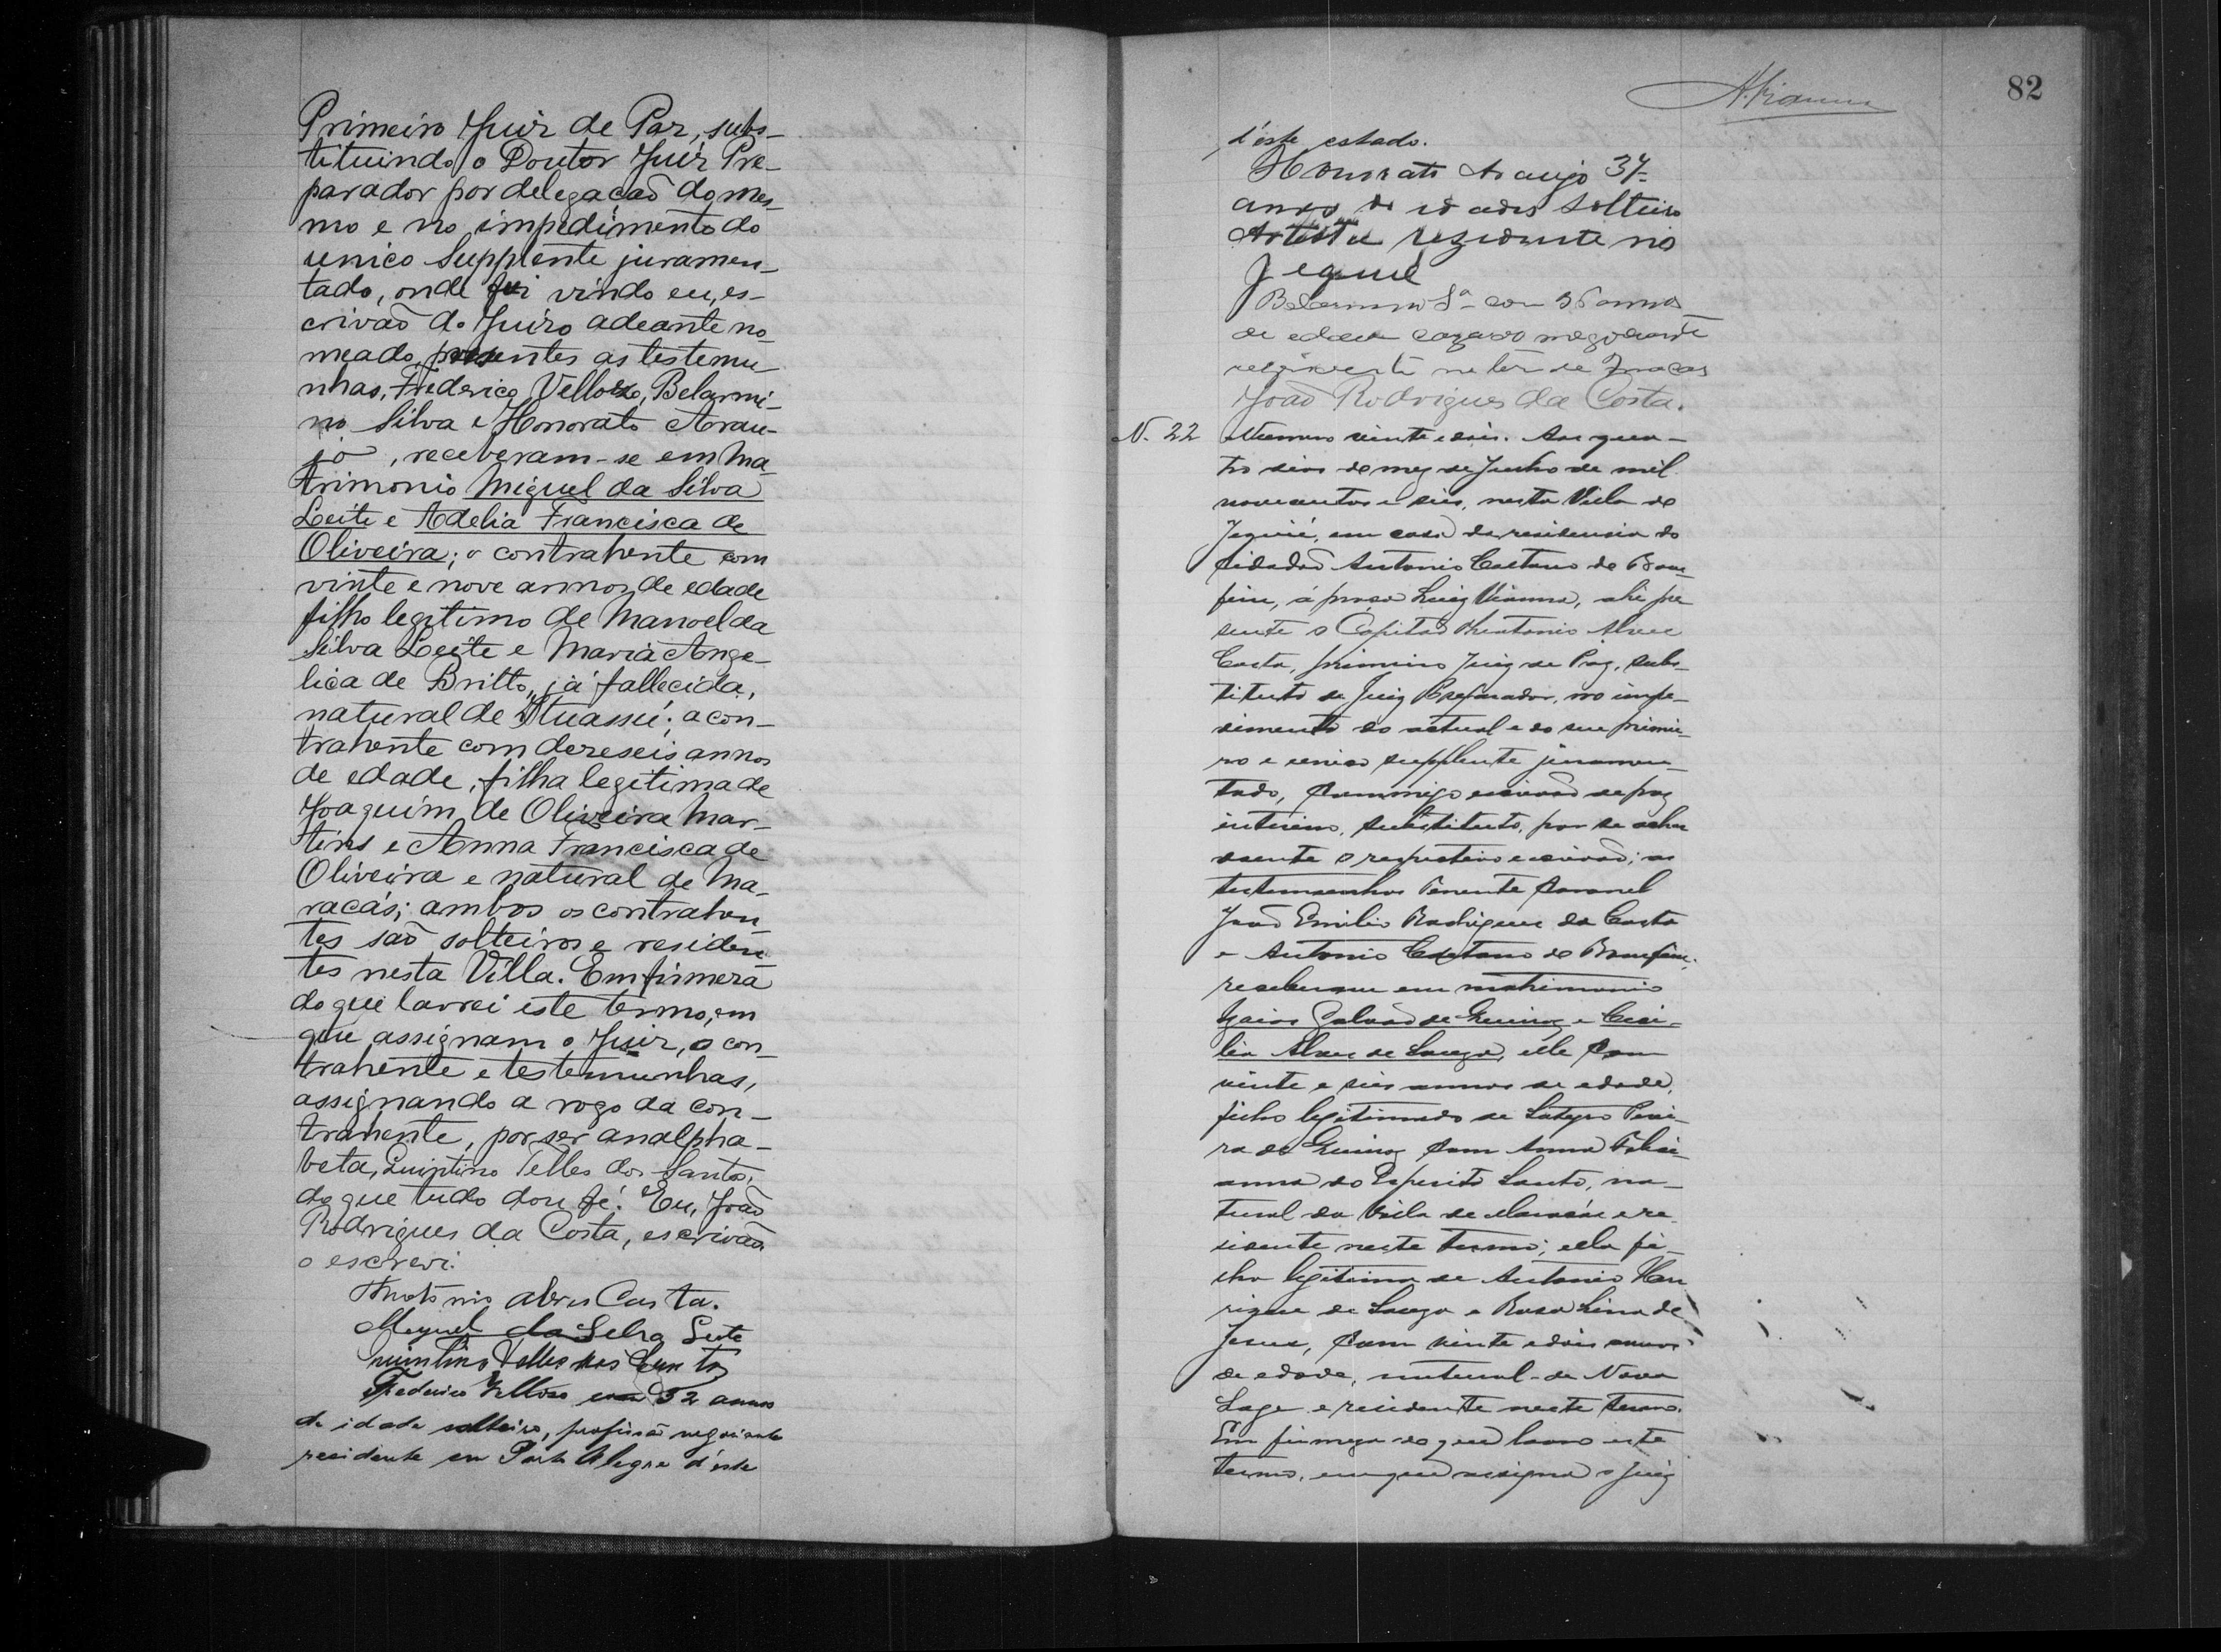 Primeiro Juiz de Paz, subs-
tituindo o Doutor Juiz Pre-
parador por delegação do mes-
mo e no impedimento do
unico Supplente juramen-
tado, onde fui vindo eu, es-
crivão do Juizo adeante no-
meado, presentes as testemu-
nhas, Frederico Vellozo, Belarmi-
no Silva e Honorato Arau-
jo, receberam-se em Ma-
trimonio Miguel da Silva
Leite e Adelia Francisca de
Oliveira; o contrahente com
vinte e nove annos de edade
filho legitimo de Manoel da
Silva Leite e Maria Ange-
lica de Britto, já fallecida,
natural de Ituassú; a con-
trahente com dezeseis annos
de edade, filha legitima de
Joaquim de Oliveira Mar-
tins e Anna Francisca de
Oliveira e natural de Ma-
racás; ambos os contrahen-
tes são solteiros e residen-
tes nesta Villa. Em firmeza
do que lavrei este termo, em
que assignam o Juiz, o con-
trahente e testemunhas,
assignando a rogo da con-
trahente, por ser analpha-
beta, Quintino Telles dos Santos,
do que tudo dou fé. Eu, João
Rodrigues da Costa, escrivão
o escrevi.
Thotonio Alves Costa.
Meguel da Selva Leite
Quintino Telles dos Santos
Frederico Velloso com 52 annos
de idade solteiro, profissão negociante
residente em Porto Alegre d'este
82
d'este estado.
Honorato Araujo 37
annos de idades Solteiro
Artista rezidente no
Jequié
Belarmino Sa com 36 annos
de edade cazado negociante
João Rodrigues da Costa.
N. 22 Numero vinte e dois. Aos qua-
tro dias do mez de Junho de mil
novecentos e seis, nesta Villa de
Jequié, em casa da residencia do
Cidadão Antonio Caetano do Bom-
fim, á praça Luiz Vianna, ahi pre-
sente o Capitão Thotonio Alves
Costa, primeiro Juiz de Paz, subs-
tituto do Juiz Preparador, no impe-
dimento do actual e do seu primei-
ro e unico supplente juramen-
tado, commigo escrivão de paz
interino, substituto, por se achar
doente o respectivo escrivão; as
testemunhas Tenente Coronel
João Emilio Rodrigues da Costa
e Antonio Caetano do Bomfim;
receberam em matrimonio
Galvão de Queiroz e Ceci-
lia Alves de Souza, elle com
vinte e seis annos de edade,
filho legitimado de Satyro Perei-
ra de Queiroz com Anna
anna do Espirito Santo, na-
tural da Villa de Maracás e re-
sidente neste termo; ella fi-
lha legitima de Antonio Hen-
rique de Souza e Rosa Lina de
Jesus, com vinte e dois annos
de edade, natural de Nova
Lage e residente neste termo.
Em firmeza do que lavro este
termo, em que assigna o Juiz